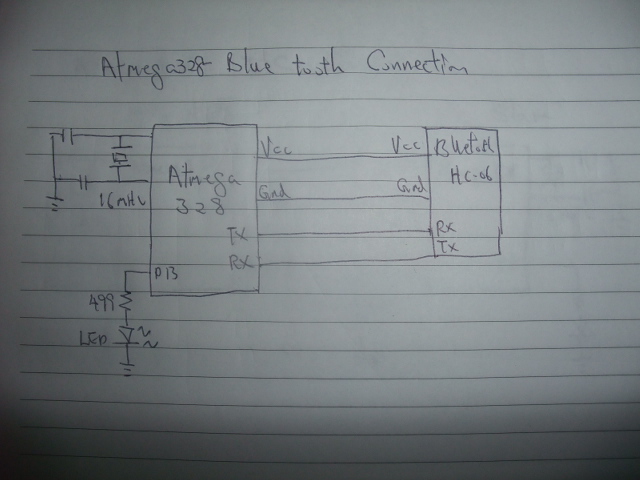 Atmega328 Blue tooth Connection
Vcc Vcc Bluetooth
Atmega HC-06
328 Gnd Gnd
16MHz
TX RX
RX TX
D13
499
LED